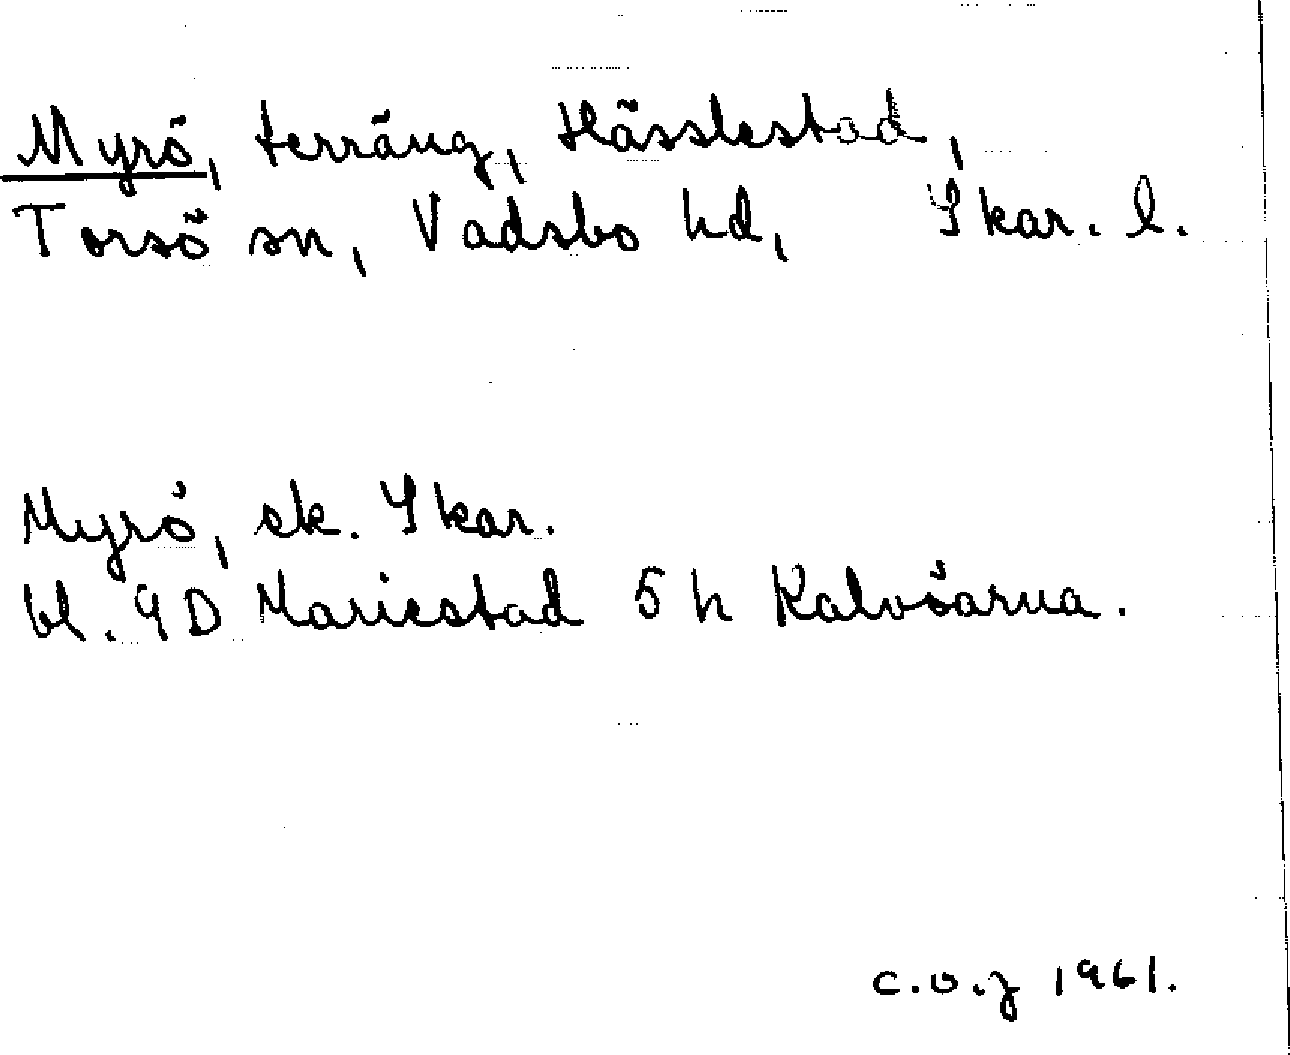 Myrö, terräng, Hässlestad,
Torsö sn, Vadsbo hd, Skar. l.
Myrö, ek. Skar.
bl. 9D Mariestad 5 h Kalvöarna.
C.O.J 1961.